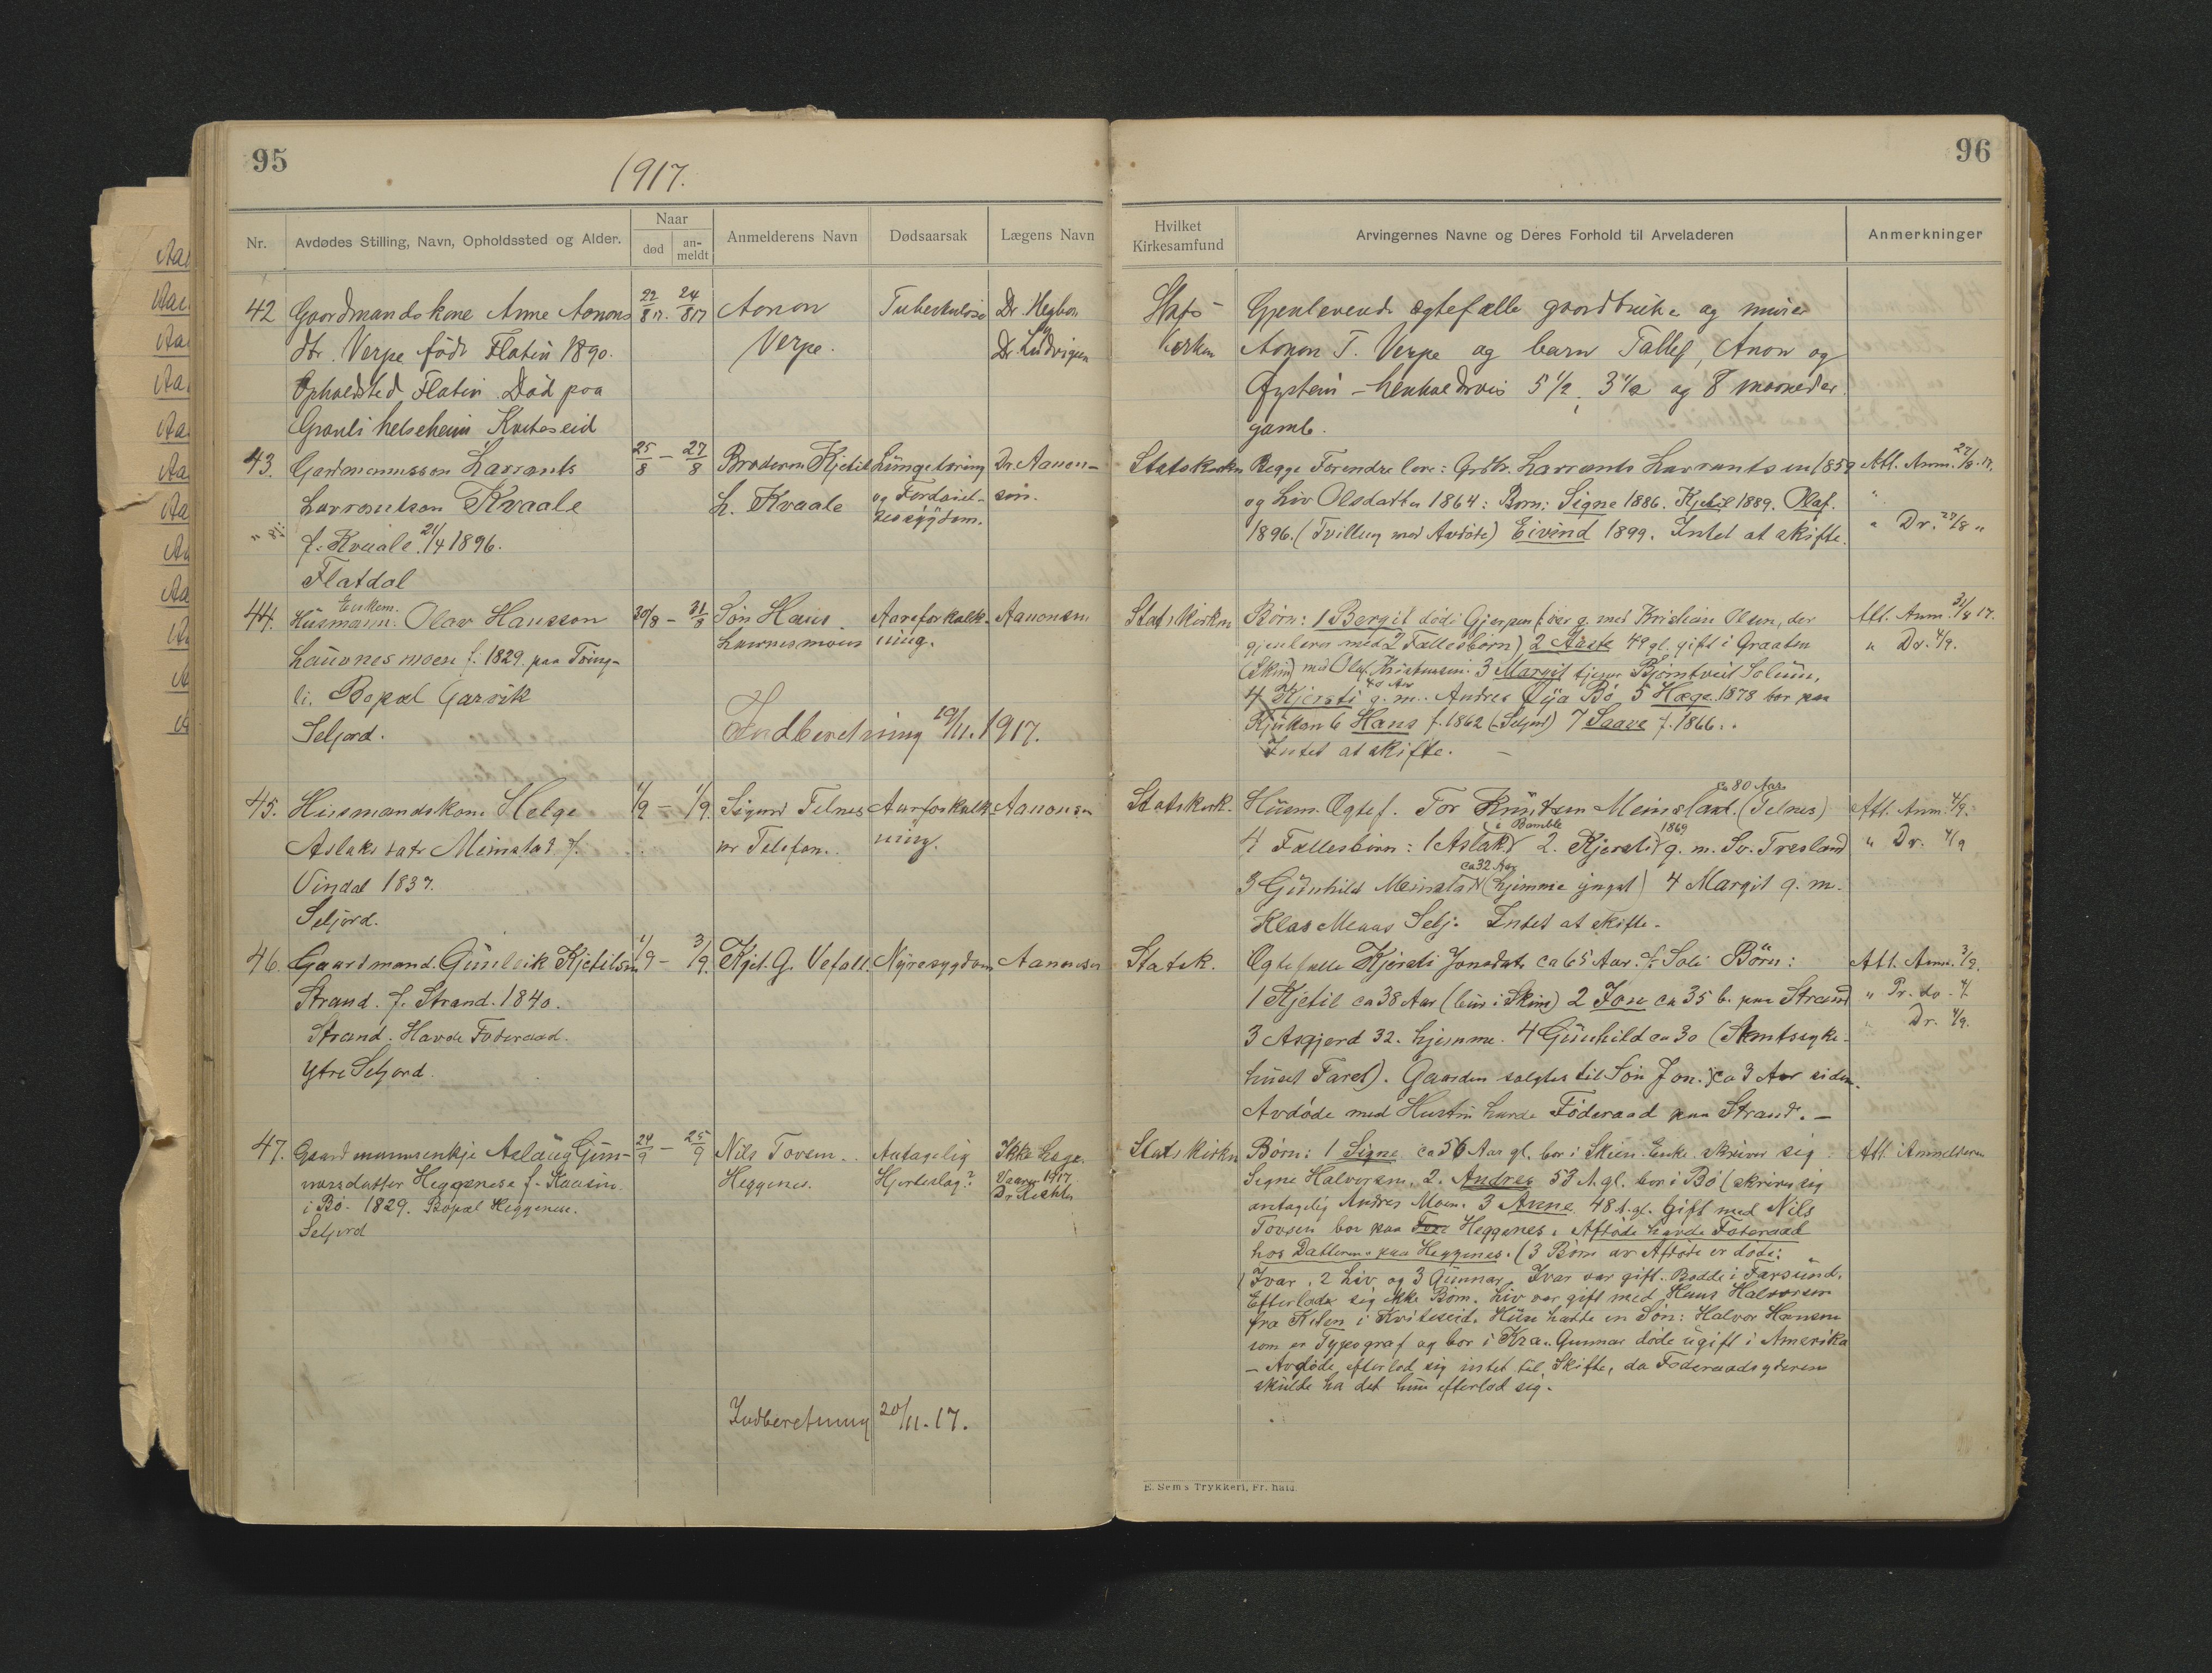 95
1917.
Nr.
Avdødes Stilling, Navn, Opholdssted og Alder.
Naar
død
an-
meldt
Anmelderens Navn
Dødsaarsak
Lægens Navn
42 Gaardmandskone Anne Aanons
dtr. Verpe født Flatin 1890.
Opholdsted Flatin. Død paa
Granli helseheim Kviteseid
22/8 17. 24/8 17
Aanon
Verpe.
Tuberkulose
Dr.
Dr. Ludvigsen
43. Gardmannsson Lavrants
Lavrantson Kvaale
f. Kvaale 21/4 1896.
Flatdal
25/8 – 27/8
Broderen Kjetil
L. Kvaale
Lungetæring
og Fordøiel-
sessygdom.
Dr. Aanon-
sen.
44. Husmann. Olav Hansson
Enkem.
Laurnesmoen f. 1829. paa Tving-
li. Bopæl Garvik
Seljord.
30/8 – 31/8
Søn Hans
Laurnesmoen
Aareforkalk-
ning.
Aanonsen
Indberetning 10/11. 1917.
45. Husmandskone Helge
Aslaksdatr Meinstad f.
Vindal 1837.
Seljord.
1/9 – 1/9.
Sigurd Telnes
pr Telefon.
Aarforkalk-
ning.
Aanonsen
46. Gaardmand. Gunleik Kjetilsen
Strand. f. Strand. 1840.
Strand. Havde Foderaad.
Ytre Seljord.
1/9 – 3/9.
Kjet. G. Vefall.
Nyresygdom
Aanonsen
47. Gaardmannsenkje Aslaug Gun-
narsdatter Heggenese f. Staasin
i Bø. 1829. Bopæl Heggenese.
Seljord
24/9 – 25/9
Nils Tovsen..
Heggenes.
Antagelig
Hjerteslag?
Ikke Læge.
Vaaren 1917
Dr.
Indberetning 20/11. 17.
96
Hvilket
Kirkesamfund
Arvingernes Navne og Deres Forhold til Arveladeren
Anmerkninger
Stats-
kirken
Gjenlevende ægtefælle gaardbruker og murer
Aanon T. Verpe og barn Tallef, Anon og
Øystein – henholdsvis 5 1/2, 3 1/2 og 8 maaneder
gamle.
Statskirken
Begge Forendre lever: Grdbr. Lavrants Lavrantsen 1859
og Liv Olsdatter 1864: Børn: Signe 1886. Kjetil 1889. Olaf.
1896. (Tvilling med Avdøde) Eivind 1899. Intet at skifte.
Att. Anm. 27/8. 17.
"
" Dr. 27/8 "
Statskirken
Børn: 1 Bergit død i Gjerpen (var g. med Kristian Olsen, der
gjenlever med 2 Fællesbørn) 2 Aaste 49 gl. gift i Graaten
(Skien) med Olaf Kristensen. 3 Margit tjener Bjørntvedt Solum,
40 Aar
4 Kjersti g. m. Andres Øya Bø 5 Hæge 1878 bor paa
Rjukan 6 Hans f. 1862 (Seljord) 7 Saave f. 1866..
Intet at skifte. –
Att. Anm. 31/8 17.
" Dr. 4/9.
Statskirk.
ca 80 Aar
Husm. Ægtef. Tor Knutsen Meinstad. (Telnes)
i Bamble 1869
4 Fællesbørn: 1 Aslak 2. Kjersti g. m. Sv. Tresland
ca 32 Aar
3 Gunhild Meinstad (hjemme yngst) 4 Margit g. m.
Klas Meaas Selj. Intet at skifte.
Att. Anm. 4/9.
" Dr. 4/9
Statsk.
Ægtefælle Kjersti Jonsdatr ca 65 Aar. f. Soli Børn:
1 Kjetil ca 38 Aar (bur i Skien) 2 Jon ca 35 b. paa Strand
3 Asgjerd 32. hjemme. 4 Gunhild ca 30 (Amtssyke-
huset Faret). Gaarden solgtes til Søn Jon. ca 3 Aar siden.
Avdøde med Hustru havde Føderaad paa Strand. –
Att. Anm. 3/9.
" Pr. do.
" Dr. 4/9.
Statskirken
Børn: 1 Signe ca 56 Aar gl. bor i Skien. Enke. skriver sig
Signe Halvorsen, 2. Andres 53 A. gl. bor i Bø (skriver sig
antagelig Andres Moen. 3 Anne 48 A. gl. Gift med Nils
Tovsen bor paa Heggenes. Afdøde havde Foderaad
hos Datteren paa Heggenes. (3 Børn av Afdøde er døde:
1 Ivar, 2 Liv og 3 Gunnar. Ivar var gift. Bodde i Farsund.
Efterlader sig ikke Børn. Liv var gift med Hans Halvorsen
fra Kilen i Kviteseid. Hun hadde en Søn: Halvor Hansen
som er Typograf og bor i Kra.. Gunnar døde ugift i Amerika
– Avdøde efterlod sig intet til Skifte, da Foderaadsyderen
skulde ha det hun efterlod sig.
Att. Anmelderen
E. Sem's Trykkeri, Fr.hald.